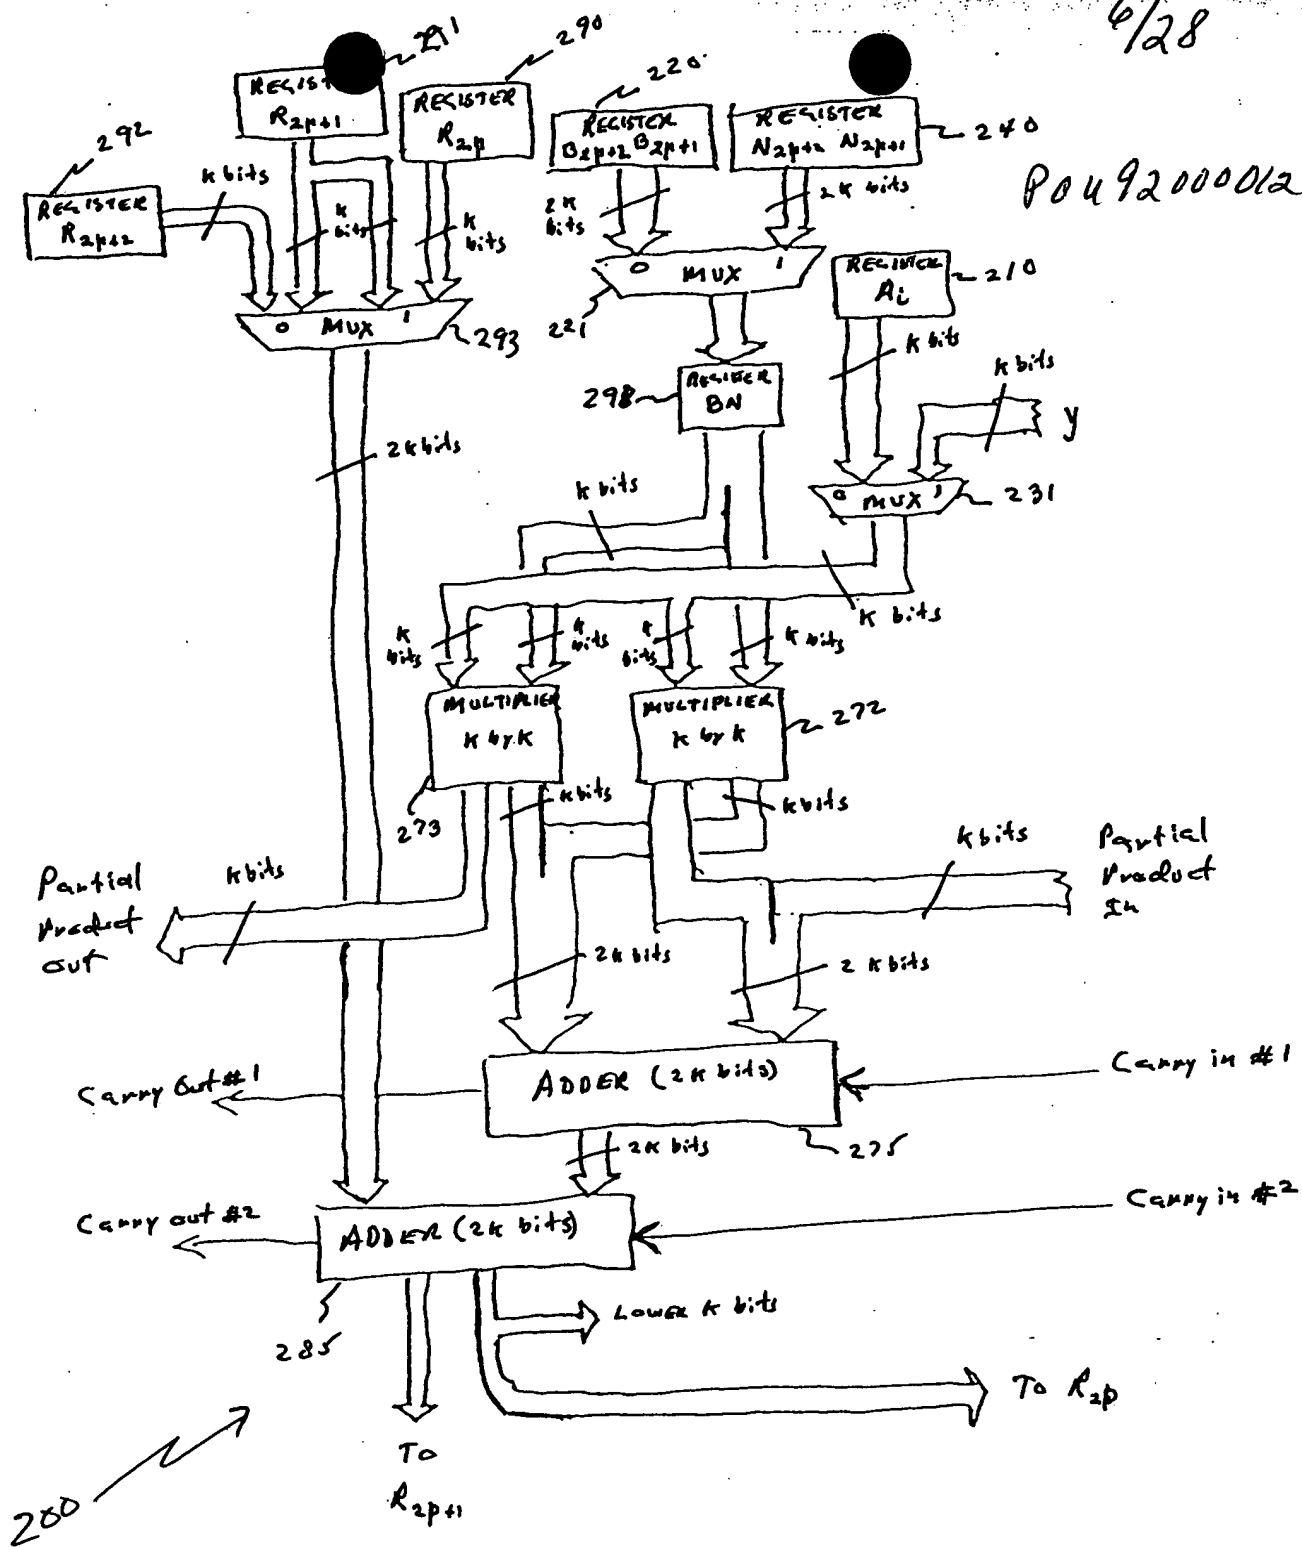 6/28
291
290
220
REGIST
R2p+1
REGISTER
R2p
REGISTER
B2p+2 B2p+1
REGISTER
N2p+2 N2p+1
240
292
POU92000012
REGISTER
R2p+2
k bits
k bits
k bits
2k bits
2k bits
0 MUX 1
293
0 MUX 1
221
REGISTER
Ai
210
k bits
k bits
y
298
REGISTER
BN
2k bits
0 MUX 1
231
k bits
k bits
k bits
k bits
k bits
k bits
MULTIPLIER
k by k
273
MULTIPLIER
k by k
272
k bits
k bits
Partial
Product
out
k bits
k bits
Partial
Product
In
2k bits
2k bits
Carry out #1
ADDER (2k bits)
Carry in #1
275
2k bits
Carry out #2
ADDER (2k bits)
Carry in #2
285
LOWER k bits
To R2p
To
R2p+1
200